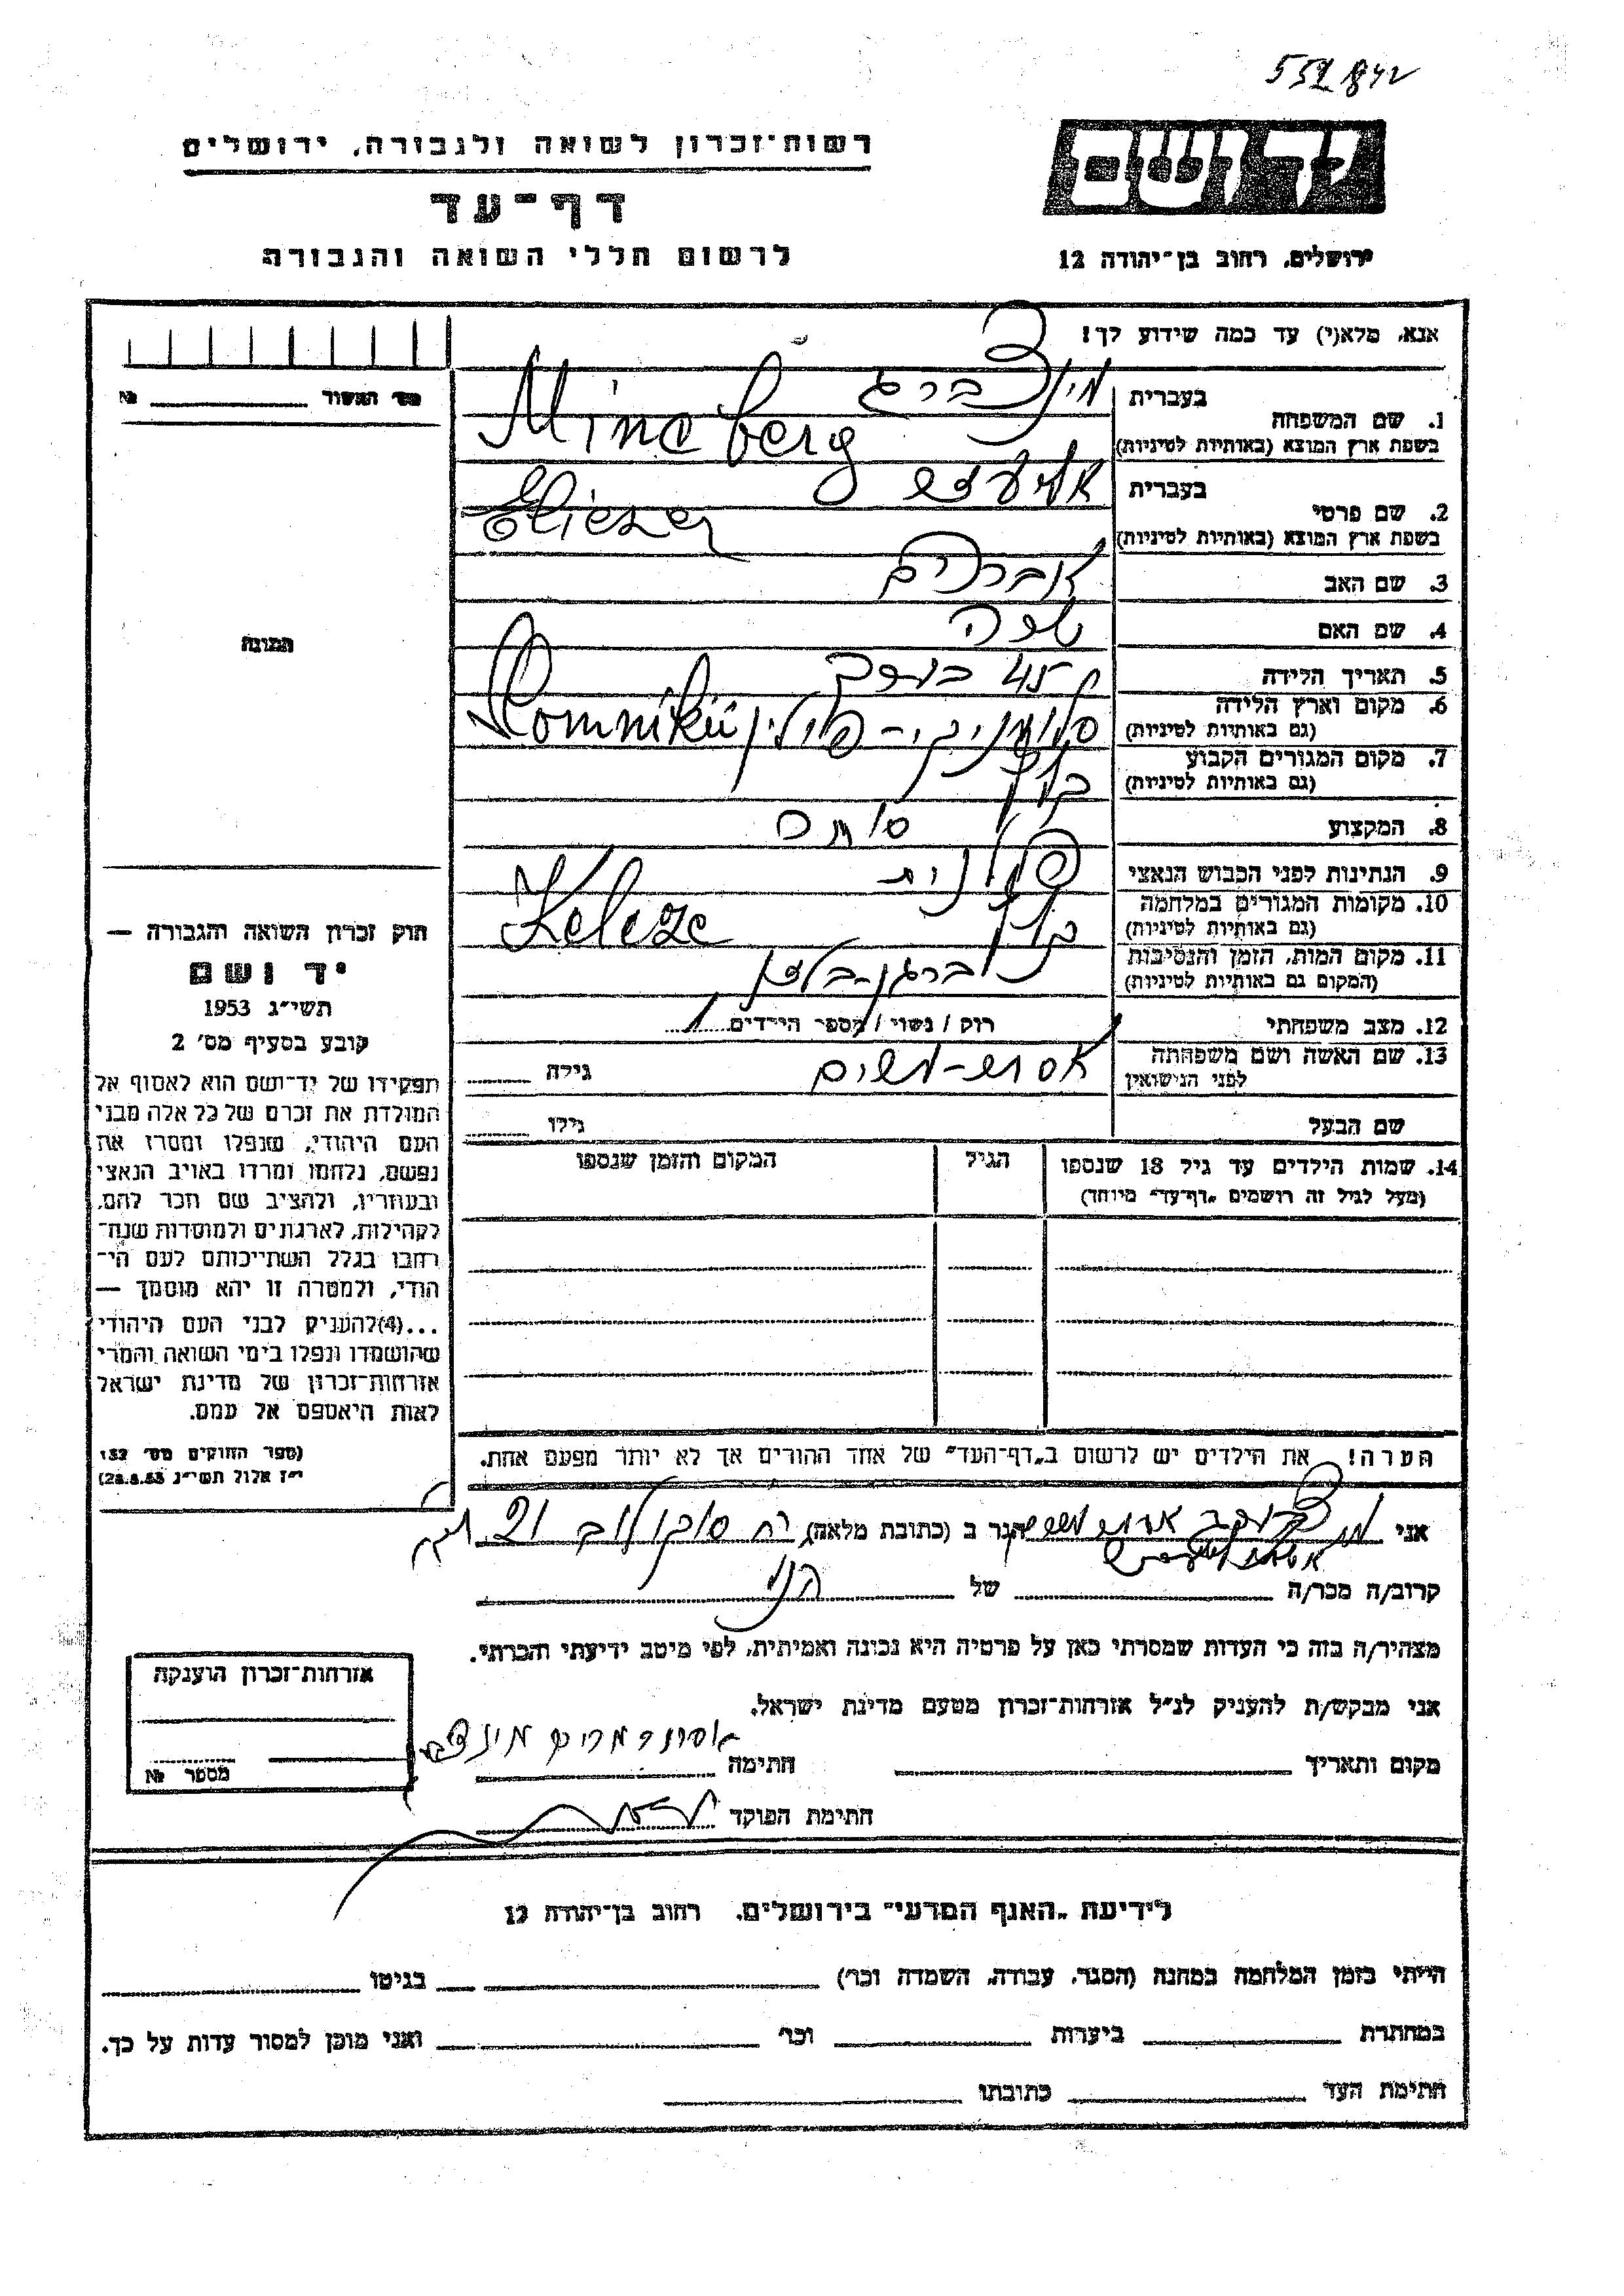 552842
רשות־זכרון לשואה ולגבורה, ירושלים
דף־עד
לרשום חללי השואה והגבורה
יד ושם
ירושלים, רחוב בן־יהודה 12
אנא, מלא(י) עד כמה שידוע לך!
מס׳ האשור №
1. שם המשפחה בעברית מינצברג
בשפת ארץ המוצא (באותיות לטיניות) Mincberg
2. שם פרטי בעברית אליעזר
בשפת ארץ המוצא (באותיות לטיניות) Eliezer
3. שם האב אברהם
4. שם האם
5. תאריך הלידה 45
6. מקום וארץ הלידה
(גם באותיות לטיניות) סלומניקי - פולין Slomniki
7. מקום המגורים הקבוע
(גם באותיות לטיניות)
8. המקצוע סוחר
9. הנתינות לפני הכבוש הנאצי פולנית
10. מקומות המגורים במלחמה
(גם באותיות לטיניות) Keleze
11. מקום המות, הזמן והנסיבות
(המקום גם באותיות לטיניות) ברגן-בלזן
12. מצב משפחתי רוק / נשוי / מספר הילדים
13. שם האשה ושם משפחתה
לפני הנישואין גילה
שם הבעל גילו
14. שמות הילדים עד גיל 18 שנספו
(מעל לגיל זה רושמים „דף־עד״ מיוחד)
הגיל
המקום והזמן שנספו
הערה! את הילדים יש לרשום ב„דף־העד״ של אחד ההורים אך לא יותר מפעם אחת.
התמונה
חוק זכרון השואה והגבורה —
יד ושם
תשי״ג 1953
קובע בסעיף מס׳ 2
תפקידו של יד־ושם הוא לאסוף אל
המולדת את זכרם של כל אלה מבני
העם היהודי, שנפלו ומסרו את
נפשם, נלחמו ומרדו באויב הנאצי
ובעוזריו, ולהציב שם וזכר להם,
לקהילות, לארגונים ולמוסדות שנח־
רבו בגלל השתייכותם לעם הי־
הודי, ולמטרה זו יהא מוסמך —
...(4)להעניק לבני העם היהודי
שהושמדו ונפלו בימי השואה והמרי
אזרחות־זכרון של מדינת ישראל
לאות היאספם אל עמם.
(ספר החוקים מס׳ 132
י״ז אלול תשי״ג 28.8.53)
אני הגר ב (כתובת מלאה) רח סוקולוב 21
קרוב/ה מכר/ה של
מצהיר/ה בזה כי העדות שמסרתי כאן על פרטיה היא נכונה ואמיתית, לפי מיטב ידיעתי והכרתי.
אני מבקש/ת להעניק לנ״ל אזרחות־זכרון מטעם מדינת ישראל.
מקום ותאריך חתימה
חתימת הפוקד
אזרחות־זכרון הוענקה
מספר №
לידיעת „האגף המדעי״ בירושלים, רחוב בן־יהודה 12
הייתי בזמן המלחמה במחנה (הסגר, עבודה, השמדה וכר׳) בגיטו
במחתרת ביערות וכר׳ ואני מוכן למסור עדות על כך.
חתימת העד כתובתו